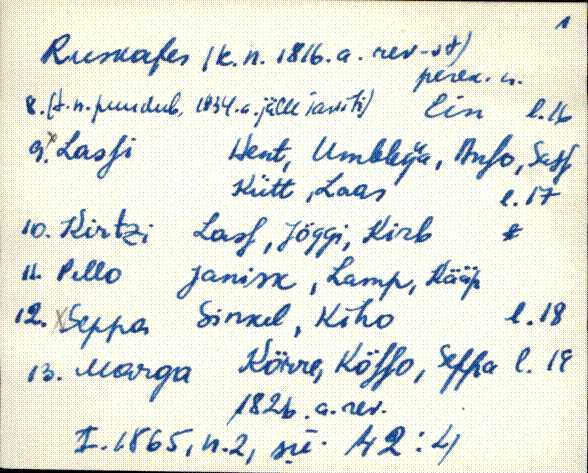 1
Ruskafer (k.n. 1816.a. rev-st)
perek. n.
8. (k.n. puudub, 1834.a. jälle
Ein l.16
9. Lassi Hent, Umbleja, Anso, Sass
Kütt, Laas l.17
10. Kirtzi Lass, Jöggi, Kirb
11. Pello Janisk, Lamp, Kääp
12. Seppa Sinkel, Kiho l.18
13. Marga Körre, Kösso, Seppa l. 19
1826.a.rev.
I.1865, n.2, sü. 42:4